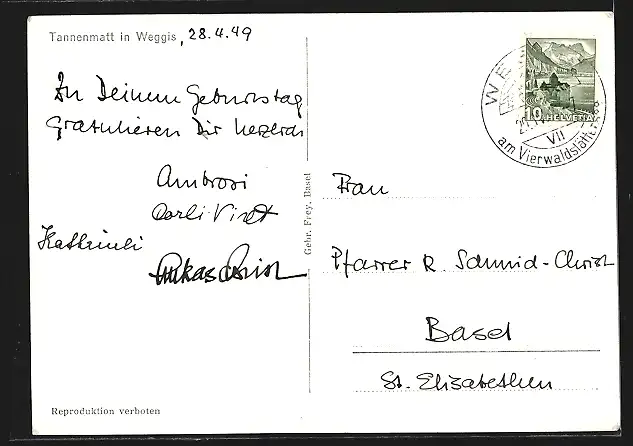 Tannenmatt in Weggis, 28.4.49
Zu Deinem Geburtstag
Gratulieren Dir herzlich
Ambrosi
Kathrinli
Lukas Christ
Gebr. Frey, Basel
Reproduktion verboten
10 HELVETIA
VII
am Vierwaldstätter
Frau
Pfarrer R. Schmid-Christ
Basel
St. Elisabethen